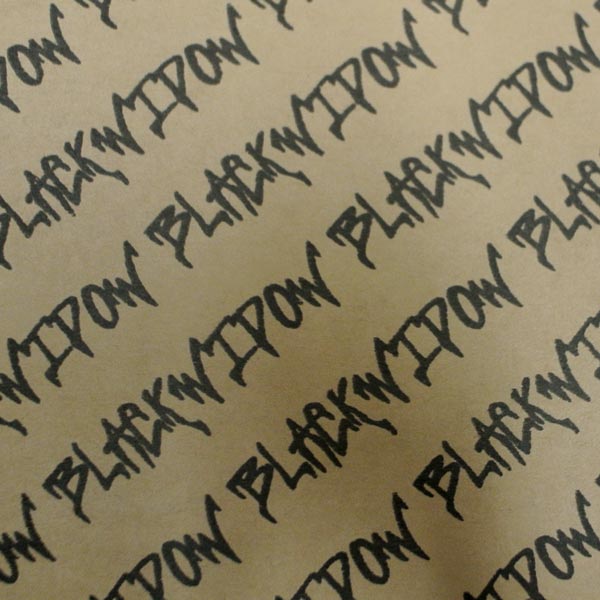 DOW
BLACKWIDOW
WIDOW BLACKWIDOW
OW BLACKWIDOW BLACKWIDOW
IDOW BLACKWIDOW BLAC
IDOW BLACKWI
DOW